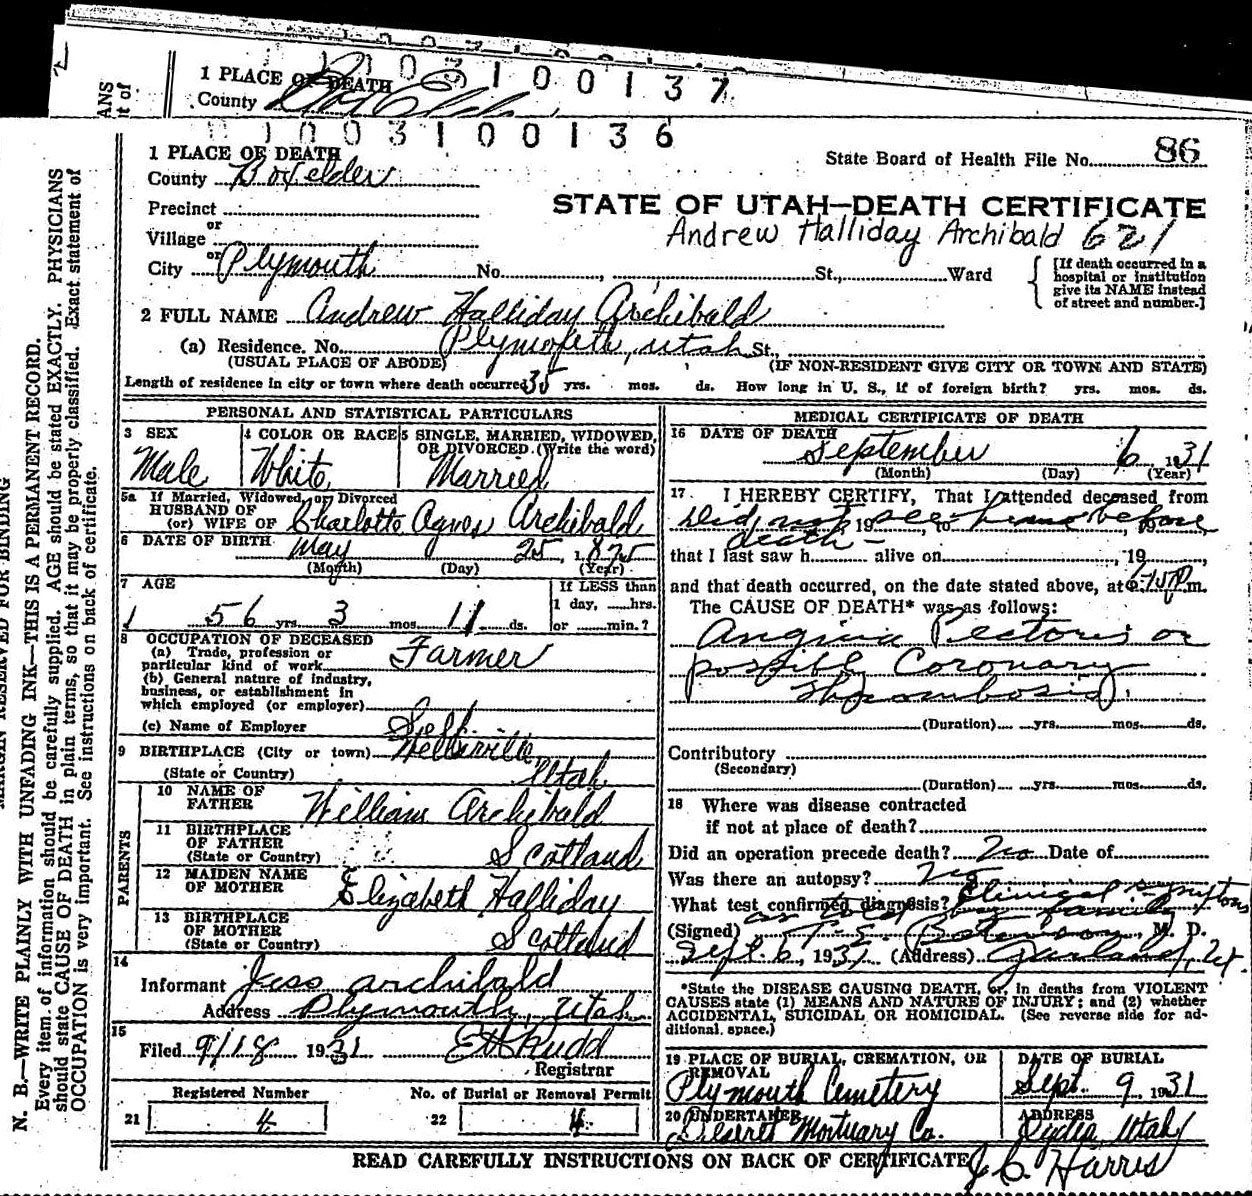 1 PLACE OF DEATH
County
100137
1003100136
86
1 PLACE OF DEATH
State Board of Health File No.
County Boxelder
STATE OF UTAH—DEATH CERTIFICATE
Precinct
or
Village
Andrew Halliday Archibald 621
or
City Plymouth No. St., Ward
[If death occurred in a hospital or institution give its NAME instead of street and number.]
2 FULL NAME Andrew Halliday Archibald
(a) Residence. No. Plymouth, Utah St.,
(USUAL PLACE OF ABODE) (IF NON-RESIDENT GIVE CITY OR TOWN AND STATE)
Length of residence in city or town where death occurred 35 yrs. mos. ds. How long in U. S., if of foreign birth? yrs. mos. ds.
PERSONAL AND STATISTICAL PARTICULARS
3 SEX
Male
4 COLOR OR RACE
White
5 SINGLE, MARRIED, WIDOWED, OR DIVORCED (Write the word)
Married
5a If Married, Widowed, or Divorced
HUSBAND OF
(or) WIFE OF Charlotte Agnes Archibald
6 DATE OF BIRTH May 25, 1875
(Month) (Day) (Year)
7 AGE
56 yrs. 3 mos. 11 ds.
If LESS than
1 day, hrs.
or min.?
8 OCCUPATION OF DECEASED
(a) Trade, profession or
particular kind of work Farmer
(b) General nature of industry,
business, or establishment in
which employed (or employer)
(c) Name of Employer Self
9 BIRTHPLACE (City or town) Wellsville
(State or Country) Utah
PARENTS
10 NAME OF
FATHER William Archibald
11 BIRTHPLACE
OF FATHER
(State or Country) Scotland
12 MAIDEN NAME
OF MOTHER Elizabeth Halliday
13 BIRTHPLACE
OF MOTHER
(State or Country) Scotland
14
Informant Jess Archibald
Address Plymouth, Utah
15
Filed 9/18 1931 Rudd
Registrar
Registered Number
21 4
No. of Burial or Removal Permit
22 4
MEDICAL CERTIFICATE OF DEATH
16 DATE OF DEATH
September 6 1931
(Month) (Day) (Year)
17 I HEREBY CERTIFY, That I attended deceased from
Did not 19 see to him before 19
death –
that I last saw h alive on , 19
and that death occurred, on the date stated above, at m.
The CAUSE OF DEATH* was as follows:
Angina Pectoris or
possibly Coronary
Thrombosis
(Duration) yrs. mos. ds.
Contributory
(Secondary)
(Duration) yrs. mos. ds.
18 Where was disease contracted
if not at place of death?
Did an operation precede death? No Date of
Was there an autopsy? No
What test confirmed diagnosis? Clinical symptoms
as told by family
(Signed) Peterson, M. D.
Sept. 6, 1931 (Address) Garland, Ut.
*State the DISEASE CAUSING DEATH, or, in deaths from VIOLENT
CAUSES state (1) MEANS AND NATURE OF INJURY; and (2) whether
ACCIDENTAL, SUICIDAL OR HOMICIDAL. (See reverse side for ad-
ditional space.)
19 PLACE OF BURIAL, CREMATION, OR
REMOVAL
Plymouth Cemetery
DATE OF BURIAL
Sept. 9, 1931
20 UNDERTAKER
Deseret Mortuary Co.
ADDRESS
Utah
READ CAREFULLY INSTRUCTIONS ON BACK OF CERTIFICATE
J. C. Harris
MARGIN RESERVED FOR BINDING
N. B.—WRITE PLAINLY WITH UNFADING INK—THIS IS A PERMANENT RECORD.
Every item of information should be carefully supplied. AGE should be stated EXACTLY. PHYSICIANS
should state CAUSE OF DEATH in plain terms, so that it may be properly classified. Exact statement of
OCCUPATION is very important. See instructions on back of certificate.